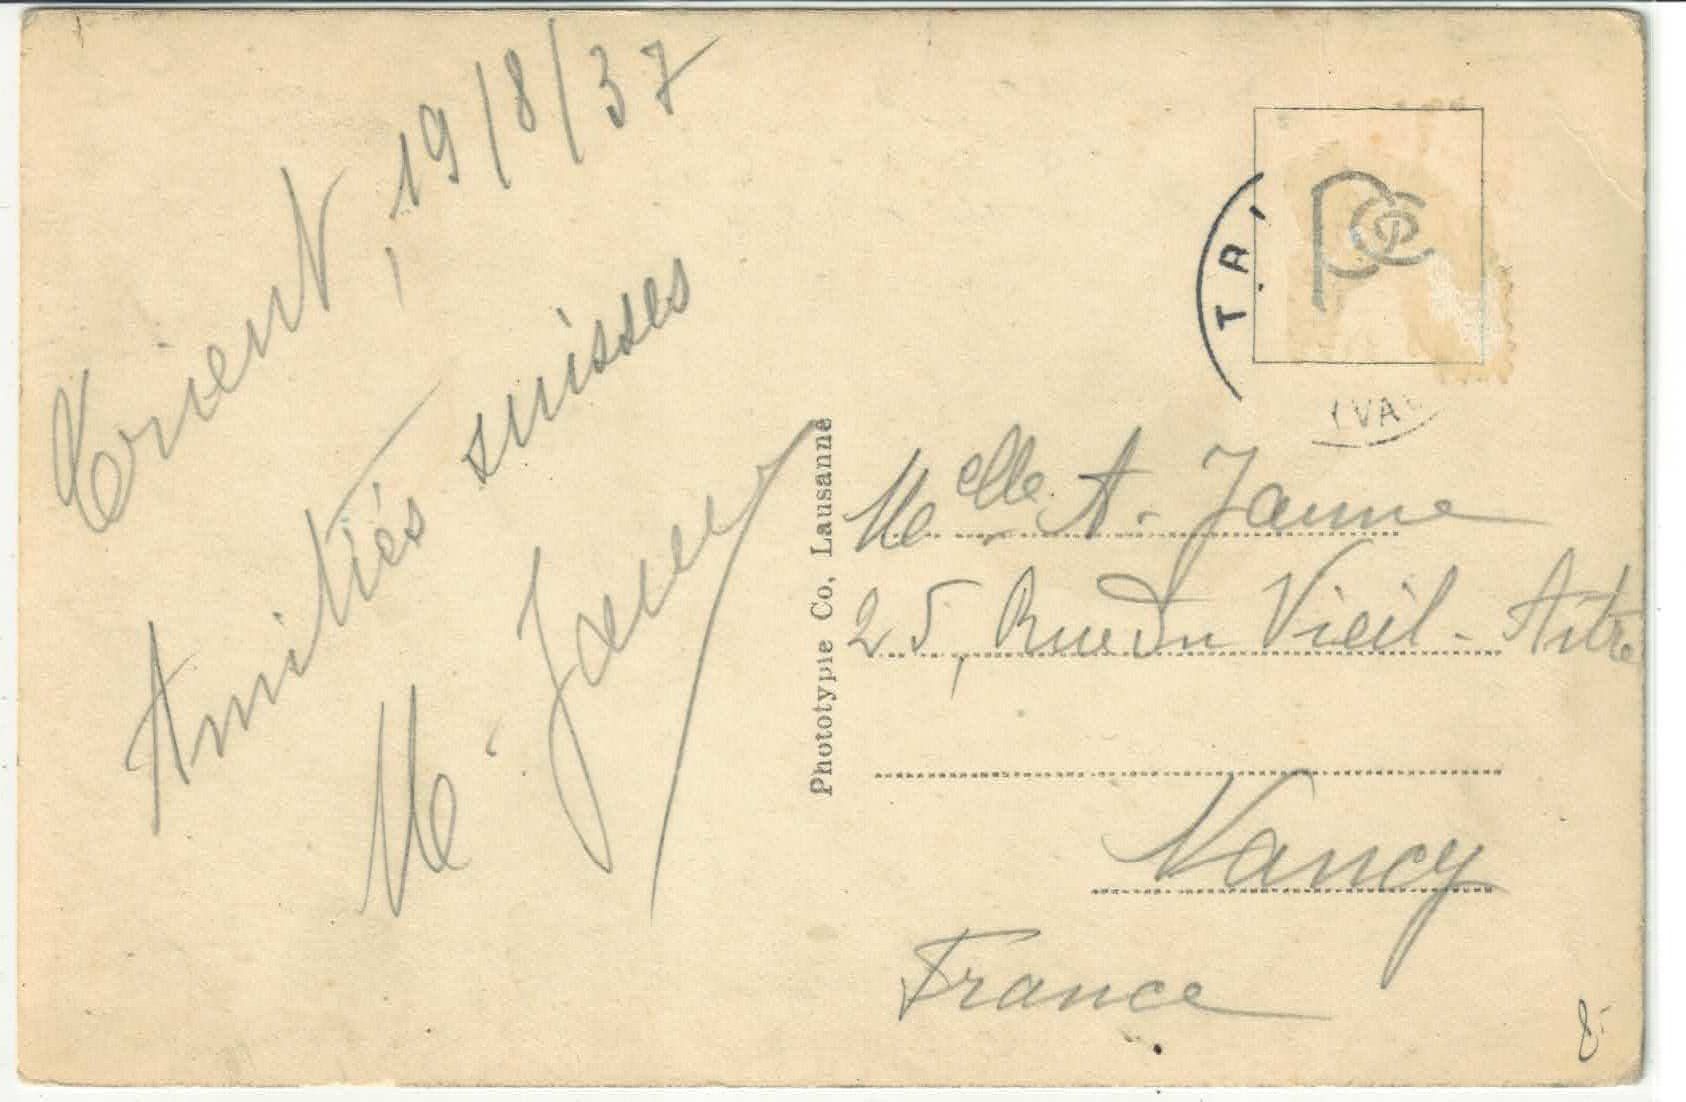 Trient, 19/8/37
Amitiés suisses
M.
Phototypie Co, Lausanne
TRI
(VA
Melle A. Jaune
25, Rue du Vieil-Aitre
Nancy
France
8.-